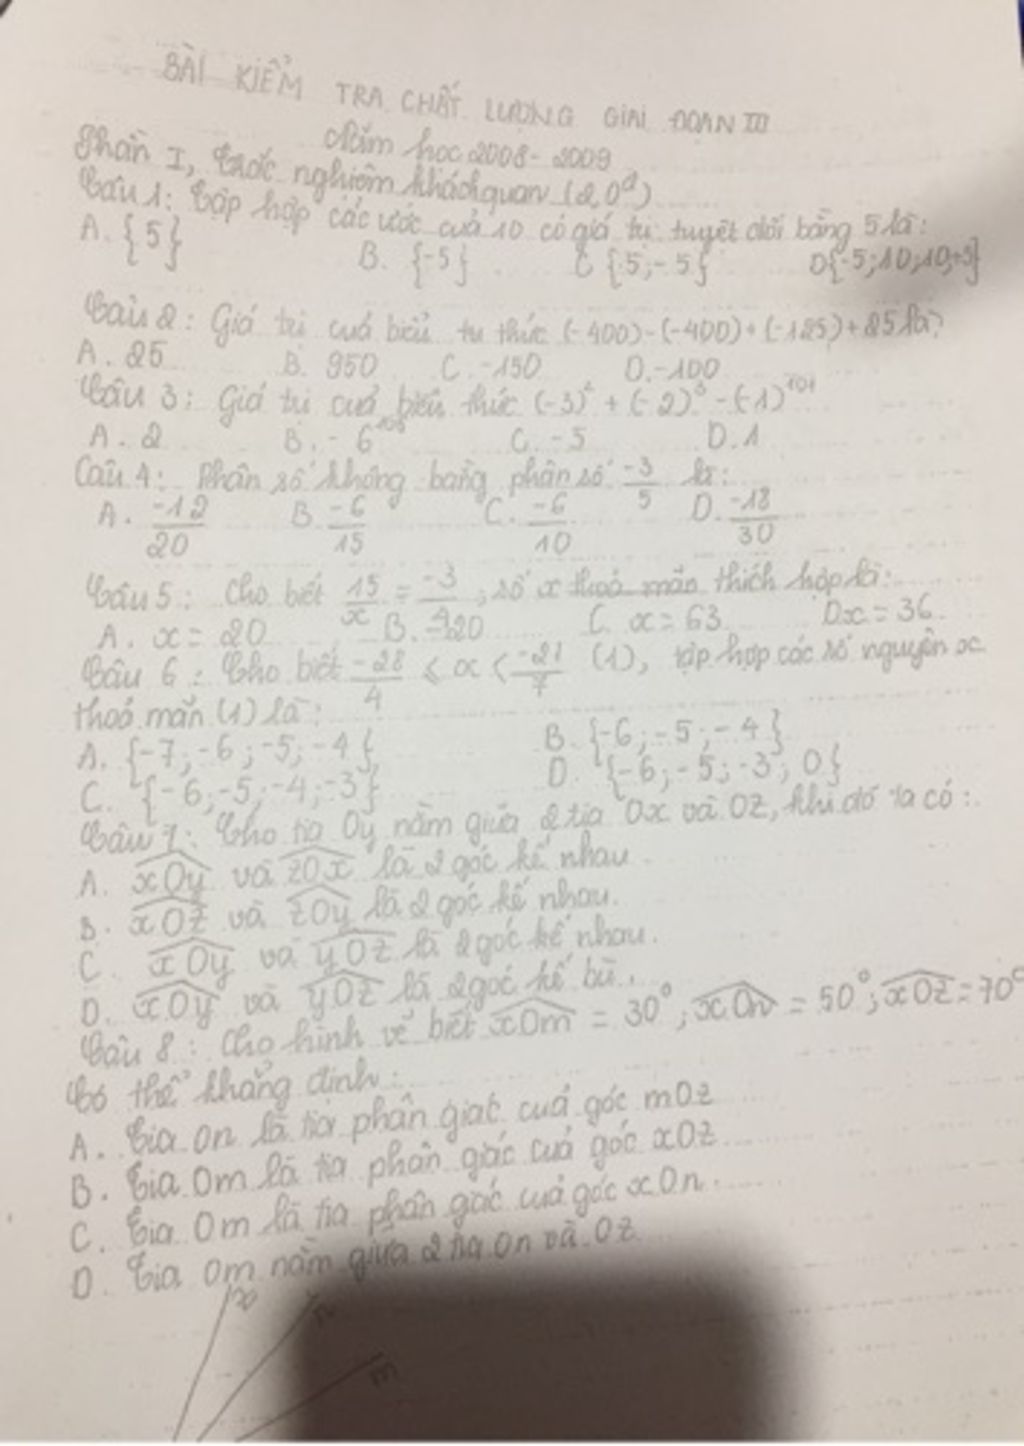 BÀI KIỂM TRA CHẤT LƯỢNG GIAI ĐOẠN III
Năm học 2008 - 2009
Phần I, trắc nghiệm khách quan (2,0đ)
Câu 1: Tập hợp các ước của 10 có giá trị tuyệt đối bằng 5 là:
A. {5} B. {-5} C {5;-5} D{-5;10;10;+5}
Câu 2: Giá trị của biểu tu thức (-400)-(-400)+(-125)+25 là?
A. 25 B. 950 C. -150 D. -100
Câu 3: Giá trị của biểu thức (-3)² + (-2)³ - (-1)¹⁰¹
A. 2 B. - 6 C. -5 D. 1
Câu 4: Phân số không bằng phân số -3/5 là:
A. -12/20 B -6/15 C. -6/10 D. -18/30
Câu 5: Cho biết 15/x = -3/4, số x thoả mãn thích hợp là:
A. x = 20 B. -20 C. x = 63 D x = 36.
Câu 6: Cho biết -28/4 ≤ x < -21/7 (1), tập hợp các số nguyên x
thoả mãn (1) là:
A. {-7;-6;-5;-4}, B. {-6;-5;-4}
C. {-6;-5;-4;-3} D. {-6;-5;-3;0}
Câu 7: Cho tia Oy nằm giữa 2 tia Ox và Oz, khi đó ta có:
A. xOy và zOx là 2 góc kề nhau.
B. xOz và zOy là 2 góc kề nhau.
C. xOy và yOz là 2 góc kề nhau.
D. xOy và yOz là 2 góc kề bù.
Câu 8: Cho hình vẽ biết xOm = 30°; xOn = 50°; xOz = 70°
Có thể khẳng định:
A. Tia On là tia phân giác của góc mOz
B. Tia Om là tia phân giác của góc xOz
C. Tia Om là tia phân giác của góc xOn.
D. Tia Om nằm giữa 2 tia On và Oz
n
m